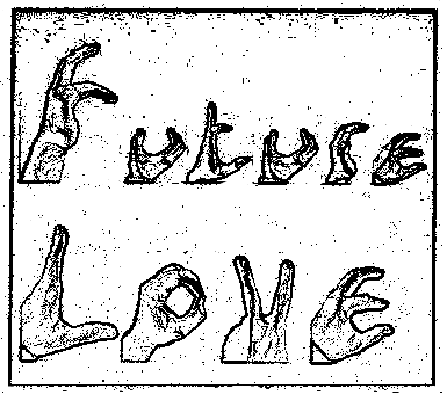 Future
Love